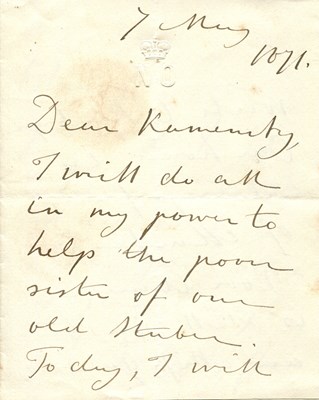 7 May
1871.
Dear Kamensky,
I will do all
in my power to
help the poor
sister of our
old Stuber.
To day, I will